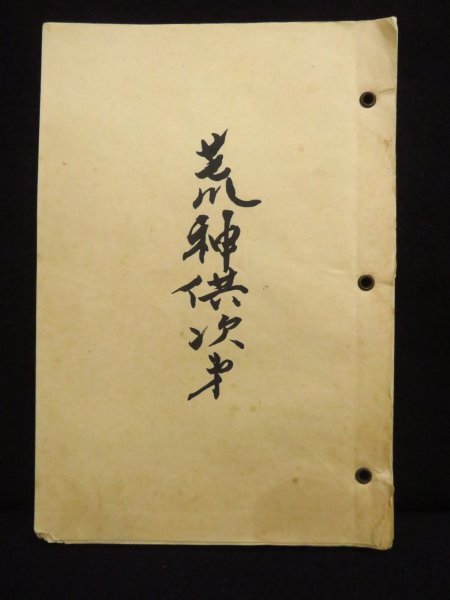 荒神供次第